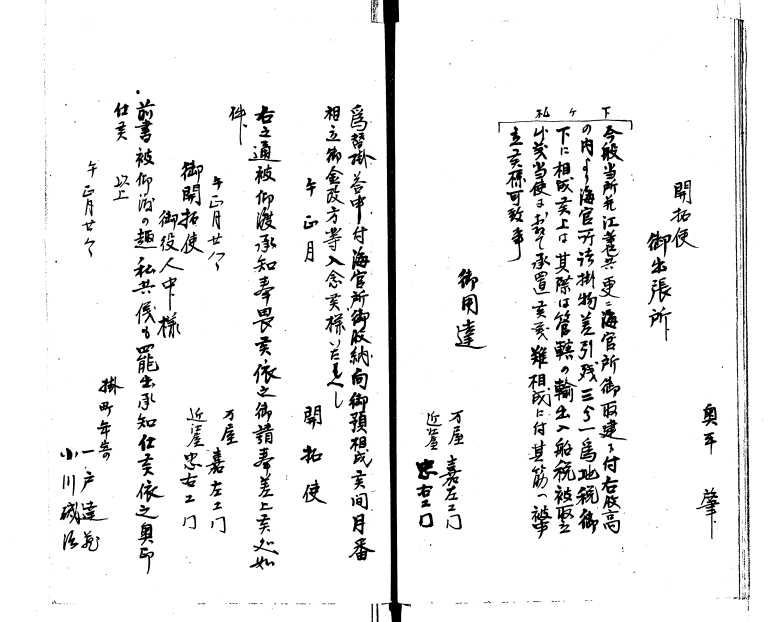 奥平 肇
開拓使
御出張所
下ケ札
今般当所並江差共更ニ海官所御取建ニ付右收高
の内より海官所諸掛物差引残三分一為地税御
下に相成候上は其際は管轄の輸出入船税被取立
候義当使におゐて承置候義難相成に付其筋へ被申
立候様可致事
御用達
万屋 嘉左エ門
近屋 忠右エ門
為替掛合申付海官所御收納向御預相成候間月番
相立御金改方等入念候様いたすへし
午正月
開拓使
右之通被仰渡承知奉畏候依之御請奉差上候処如
件
午正月廿八
万屋 嘉左エ門
近屋 忠右エ門
御開拓使
御役人中様
前書被仰渡の趣私共儀も罷出承知仕候依之奥印
仕候 以上
午正月廿八
掛町年寄
一戸達
小川